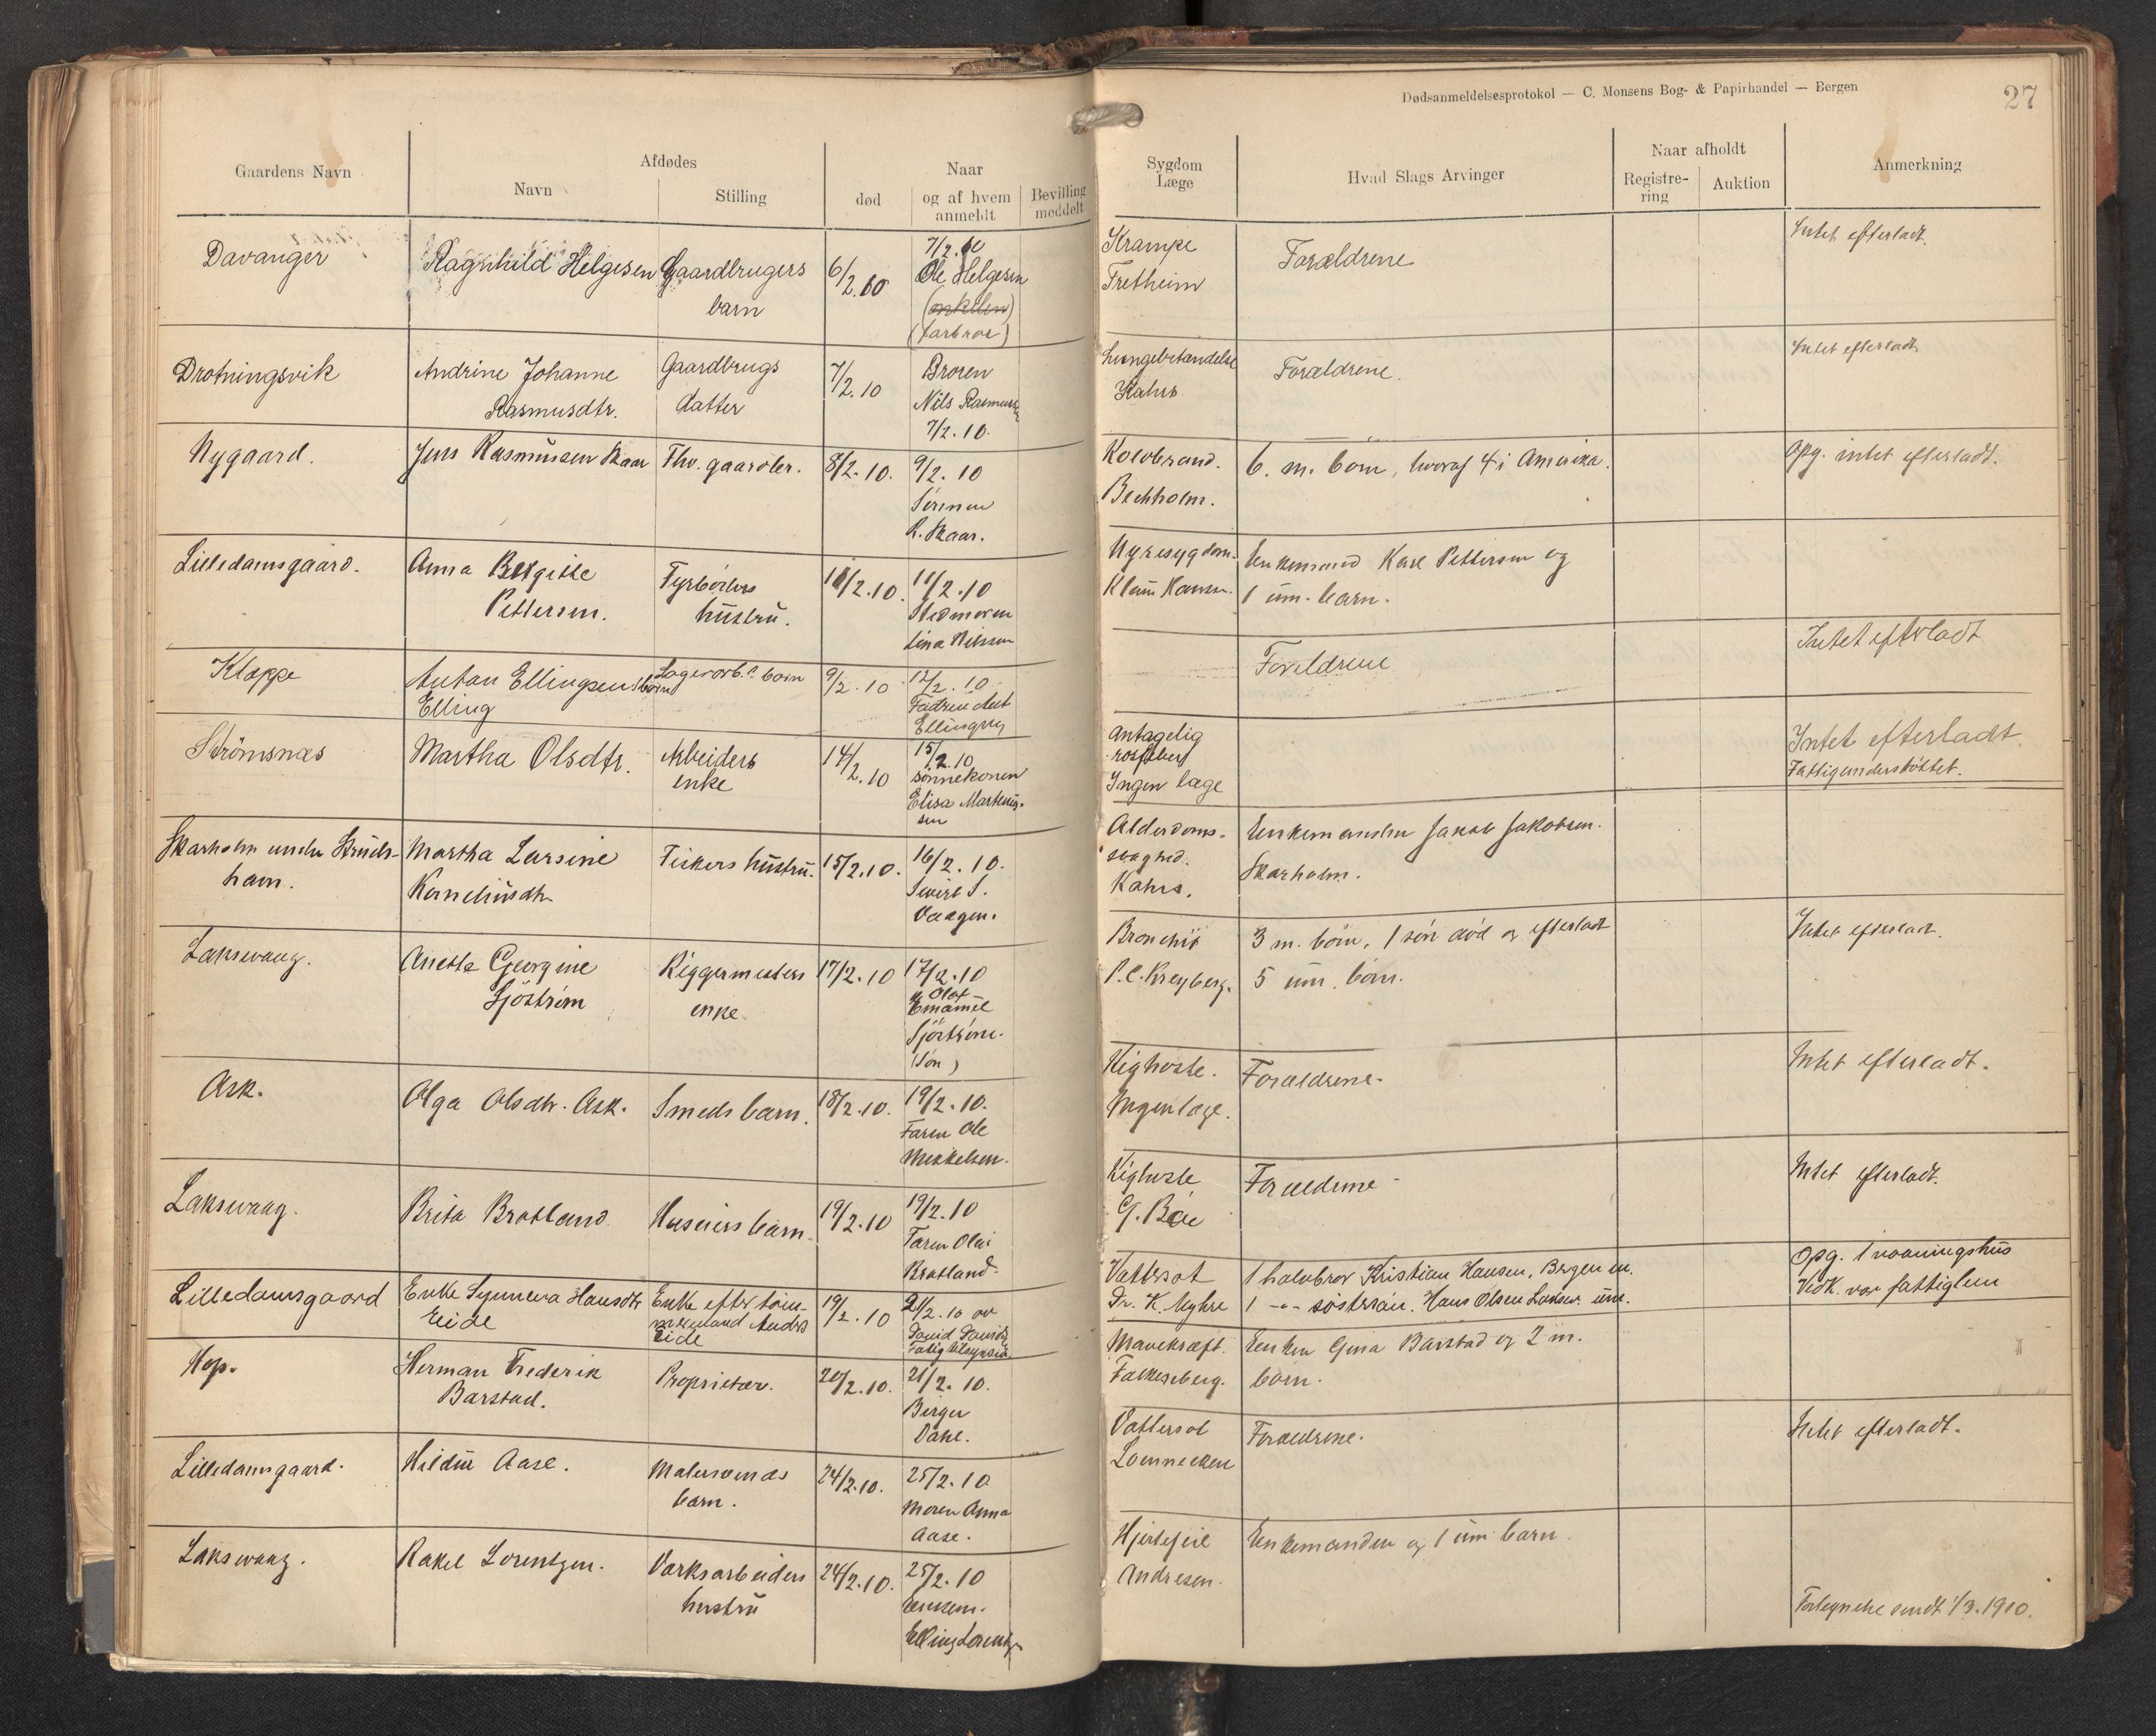 Dødsanmeldelsesprotokol — C. Monsens Bog- & Papirhandel — Bergen
27
Gaardens Navn
Afdødes
Navn
Stilling
død
Naar
og af hvem
anmeldt
Bevilling
meddelt
Sygdom
Læge
Hvad Slags Arvinger
Naar afholdt
Registre-
ring
Auktion
Anmerkning
Davanger
Ragnhild Helgesen
Gaardbrugers
barn
6/2.10
7/2.10
Ole Helgesen
(onkelen)
(farbror)
Krampe
Fretheim
Forældrene
Intet efterladt.
Drotningsvik
Andrine Johanne
Rasmusdtr.
Gaardbrugs
datter
7/2.10
Broren
Nils Rasmussen
7/2.10.
Lungebetændelse
Kahrs
Forældrene.
Intet efterladt
Nygaard.
Jens Rasmussen Skaar
Fhv. gaardbr.
8/2.10.
9/2.10
Sønnen
R. Skaar.
Koldbrand.
Bechholm.
6. m. børn, hvoraf 4 i Amerika.
Opg. intet efterladt.
Lilledamsgaard.
Anna Birgitte
Pettersen.
Fyrbøters
hustru.
10/2.10.
11/2.10
Stedmoren
Lina Nilsen
Nyresygdom.
Klaus Hansen.
Enkemand Karl Pettersen og
1 um. barn.
Kloppe
Anton Ellingsens barn
Elling
Lagerarb.s barn
9/2.10
12/2.10
Fadren Ant
Ellingsen
Foreldrene
Intet efterladt
Strömsnæs
Martha Olsdtr.
Arbeiders
enke
14/2.10
15/2.10
sønnekonen
Elisa Martinus-
sen
Antagelig
Ingen læge
Intet efterladt.
Fattigunderstøttet.
Skarholm under
havn.
Martha Larsine
Korneliusdtr.
Fiskers hustru.
15/2.10.
16/2.10.
Sivert S.
Vaagen.
Alderdoms-
svaghed.
Kahrs.
Enkemanden Jakob Jakobsen.
Skarholm.
Laksevaag.
Anetta Georgine
Sjöström
Riggermesters
enke
17/2.10
17/2.10
Olaf
Emanuel
Sjöström.
(Søn)
Bronchit
P.C. Kreyberg.
3 m. børn, 1 søn død og efterladt
5 um. børn.
Intet efterladt.
Ask.
Olga Olsdtr. Ask.
Smeds barn.
18/2.10.
19/2.10.
Faren Ole
Mikkelsen.
Kighoste.
Ingen læge.
Forældrene.
Intet efterladt.
Laksevaag.
Brita Bratland
Huseiers barn.
19/2.10
19/2.10
Faren Olai
Bratland.
Kighoste
G. Bøe
Forældrene
Intet efterladt.
Lilledamsgaard
Enke Synneva Hansdtr
Eide
Enke efter tøm-
mermand Anders
Eide
19/2.10
21/2.10 av
David Davids.
Fattigtilsynsm.
Vattersot
Dr. K. Myhre
1 halvbror Kristian Hansen, Bergen m.
1 -"- søsters. Hans Olsen Laksev. um.
Opg. 1 vaaningshus
Vedk. var fattiglem
Hop.
Herman Frederik
Barstad.
Proprietær.
20/2.10.
21/2.10.
Birger
Dahl.
Mavekræft.
Falkenberg.
Enken Gina Barstad og 2 m.
børn.
Lilledamsgaard.
Hildur Aase.
Malersvends
barn.
24/2.10.
25/2.10
Moren Anna
Aase.
Vattersot
Lonnecken
Forældrene.
Intet efterladt.
Laksevaag.
Rakel Lorentzen.
Værksarbeiders
hustru
24/2.10.
25/2.10
Enkem.
Elling Lorentzen
Hjertefeil
Andresen.
Enkemanden og 1 um. barn.
Forlegnelse sendt 1/3.1910.